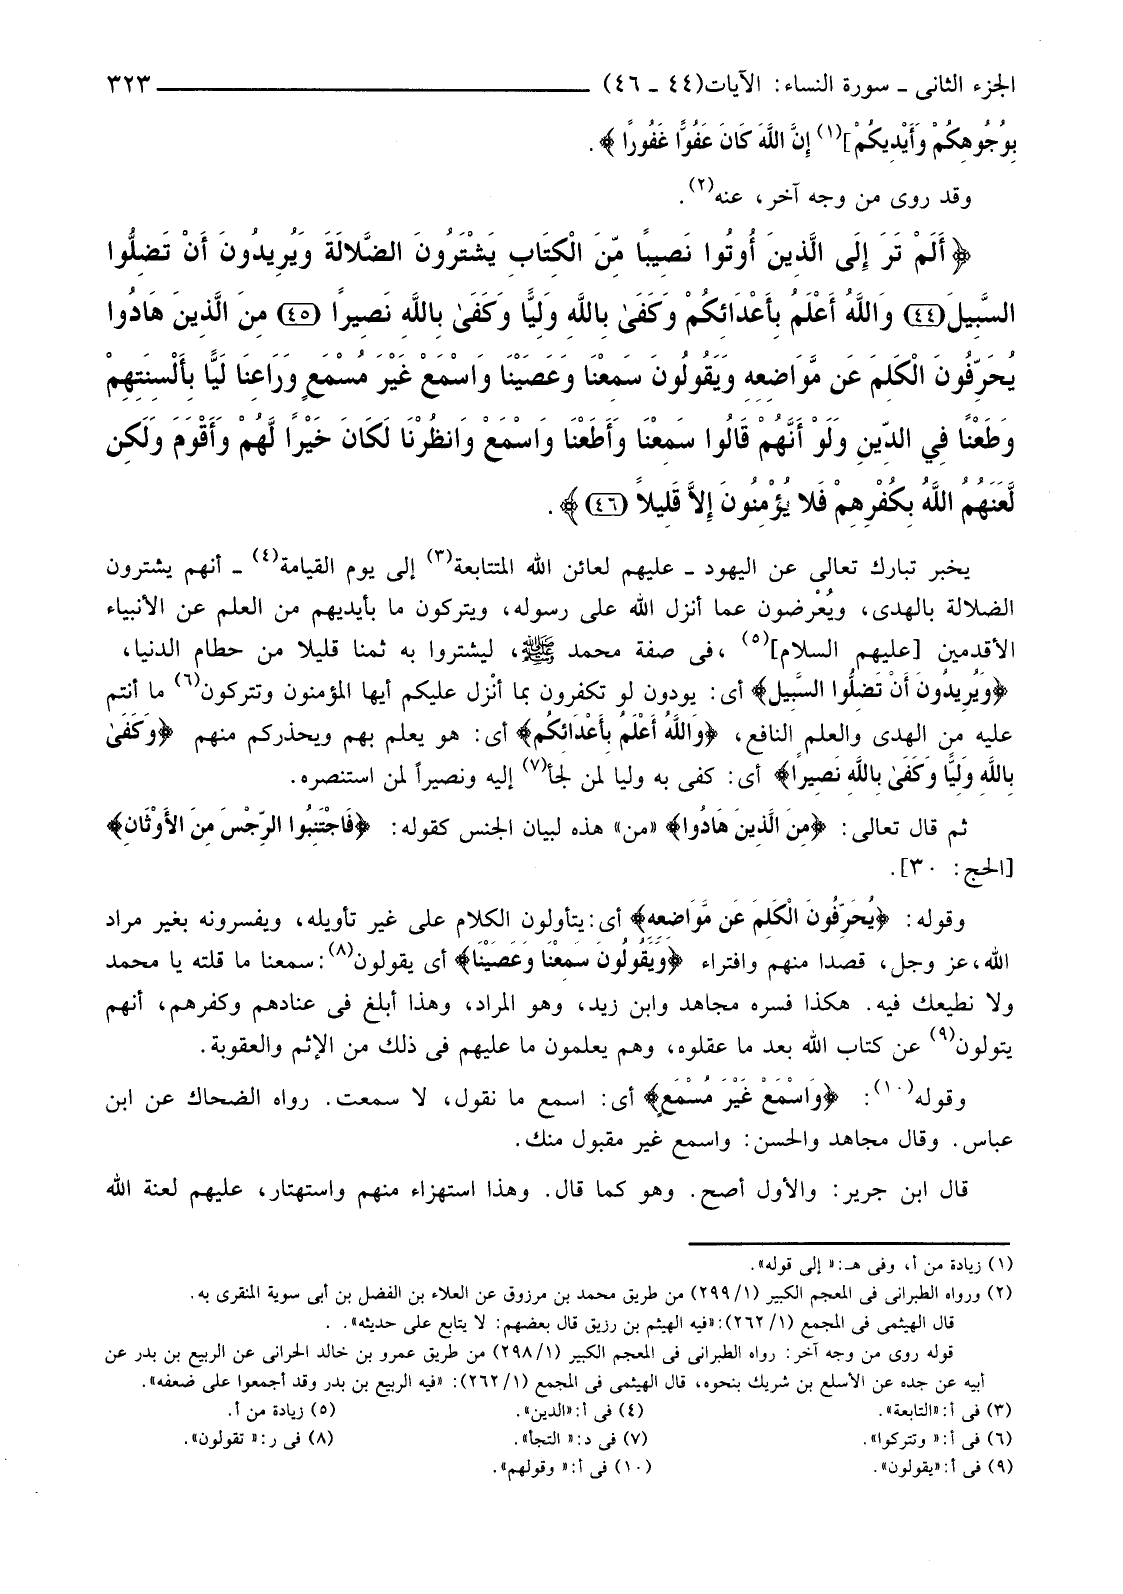 الجزء الثانى ـ سورة النساء: الآيات(٤٤ ـ ٤٦) ٣٢٣
بِوُجُوهِكُمْ وَأَيْدِيكُمْ](١) إِنَّ اللَّهَ كَانَ عَفُوًّا غَفُورًا ﴾.
وقد روى من وجه آخر، عنه(٢).
﴿ أَلَمْ تَرَ إِلَى الَّذِينَ أُوتُوا نَصِيبًا مِّنَ الْكِتَابِ يَشْتَرُونَ الضَّلالَةَ وَيُرِيدُونَ أَنْ تَضِلُّوا
السَّبِيلَ (٤٤) وَاللَّهُ أَعْلَمُ بِأَعْدَائِكُمْ وَكَفَىٰ بِاللَّهِ وَلِيًّا وَكَفَىٰ بِاللَّهِ نَصِيرًا (٤٥) مِنَ الَّذِينَ هَادُوا
يُحَرِّفُونَ الْكَلِمَ عَن مَّوَاضِعِهِ وَيَقُولُونَ سَمِعْنَا وَعَصَيْنَا وَاسْمَعْ غَيْرَ مُسْمَعٍ وَرَاعِنَا لَيًّا بِأَلْسِنَتِهِمْ
وَطَعْنًا فِي الدِّينِ وَلَوْ أَنَّهُمْ قَالُوا سَمِعْنَا وَأَطَعْنَا وَاسْمَعْ وَانظُرْنَا لَكَانَ خَيْرًا لَّهُمْ وَأَقْوَمَ وَلَكِن
لَّعَنَهُمُ اللَّهُ بِكُفْرِهِمْ فَلا يُؤْمِنُونَ إِلاَّ قَلِيلاً (٤٦)﴾.
يخبر تبارك تعالى عن اليهود ـ عليهم لعائن الله المتتابعة(٣) إلى يوم القيامة(٤) ـ أنهم يشترون
الضلالة بالهدى، ويُعْرضون عما أنزل الله على رسوله، ويتركون ما بأيديهم من العلم عن الأنبياء
الأقدمين [عليهم السلام](٥) ،فى صفة محمد ﷺ، ليشتروا به ثمنا قليلا من حطام الدنيا،
﴿وَيُرِيدُونَ أَنْ تَضِلُّوا السَّبِيلَ﴾ أى: يودون لو تكفرون بما أنْزل عليكم أيها المؤمنون وتتركون(٦) ما أنتم
عليه من الهدى والعلم النافع، ﴿وَاللَّهُ أَعْلَمُ بِأَعْدَائِكُم﴾ أى: هو يعلم بهم ويحذركم منهم ﴿وَكَفَىٰ
بِاللَّهِ وَلِيًّا وَكَفَىٰ بِاللَّهِ نَصِيرًا﴾ أى: كفى به وليا لمن لجأ(٧) إليه ونصيراً لمن استنصره.
ثم قال تعالى: ﴿مِنَ الَّذِينَ هَادُوا﴾ «من» هذه لبيان الجنس كقوله: ﴿فَاجْتَنِبُوا الرِّجْسَ مِنَ الأَوْثَانِ﴾
[الحج: ٣٠].
وقوله: ﴿يُحَرِّفُونَ الْكَلِمَ عَن مَّوَاضِعِهِ﴾ أى:يتأولون الكلام على غير تأويله، ويفسرونه بغير مراد
الله،عز وجل، قصدا منهم وافتراء ﴿وَيَقُولُونَ سَمِعْنَا وَعَصَيْنَا﴾ أى يقولون(٨):سمعنا ما قلته يا محمد
ولا نطيعك فيه. هكذا فسره مجاهد وابن زيد، وهو المراد، وهذا أبلغ فى عنادهم وكفرهم، أنهم
يتولون(٩) عن كتاب الله بعد ما عقلوه، وهم يعلمون ما عليهم فى ذلك من الإثم والعقوبة.
وقوله(١٠): ﴿وَاسْمَعْ غَيْرَ مُسْمَعٍ﴾ أى: اسمع ما نقول، لا سمعت. رواه الضحاك عن ابن
عباس. وقال مجاهد والحسن: واسمع غير مقبول منك.
قال ابن جرير: والأول أصح. وهو كما قال. وهذا استهزاء منهم واستهتار، عليهم لعنة الله
(١) زيادة من أ، وفى هـ:« إلى قوله».
(٢) ورواه الطبرانى فى المعجم الكبير (١/ ٢٩٩) من طريق محمد بن مرزوق عن العلاء بن الفضل بن أبى سوية المنقرى به.
قال الهيثمى فى المجمع (١/ ٢٦٢):«فيه الهيثم بن رزيق قال بعضهم: لا يتابع على حديثه».
قوله روى من وجه آخر: رواه الطبرانى فى المعجم الكبير (١/ ٢٩٨) من طريق عمرو بن خالد الحرانى عن الربيع بن بدر عن
أبيه عن جده عن الأسلع بن شريك بنحوه، قال الهيثمى فى المجمع (١/ ٢٦٢): «فيه الربيع بن بدر وقد أجمعوا على ضعفه».
(٣) فى أ:«التابعة». (٤) فى أ:«الدين». (٥) زيادة من أ.
(٦) فى أ:« وتتركوا». (٧) فى د:« التجأ». (٨) فى ر:« تقولون».
(٩) فى أ:«يقولون». (١٠) فى أ:« وقولهم».